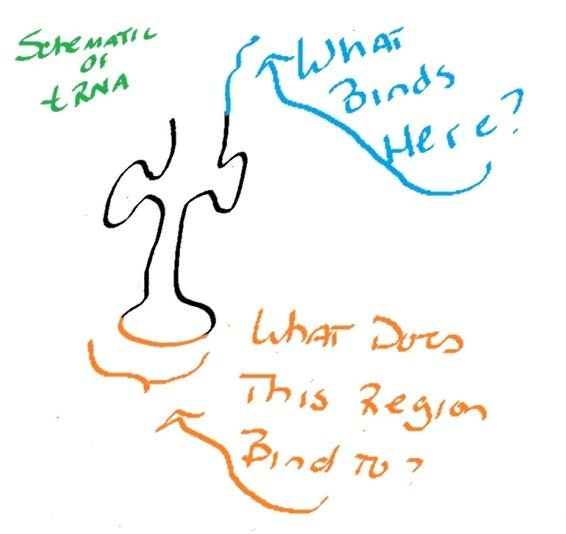 Schematic
of
tRNA
What
Binds
Here?
What Does
This Region
Bind to?